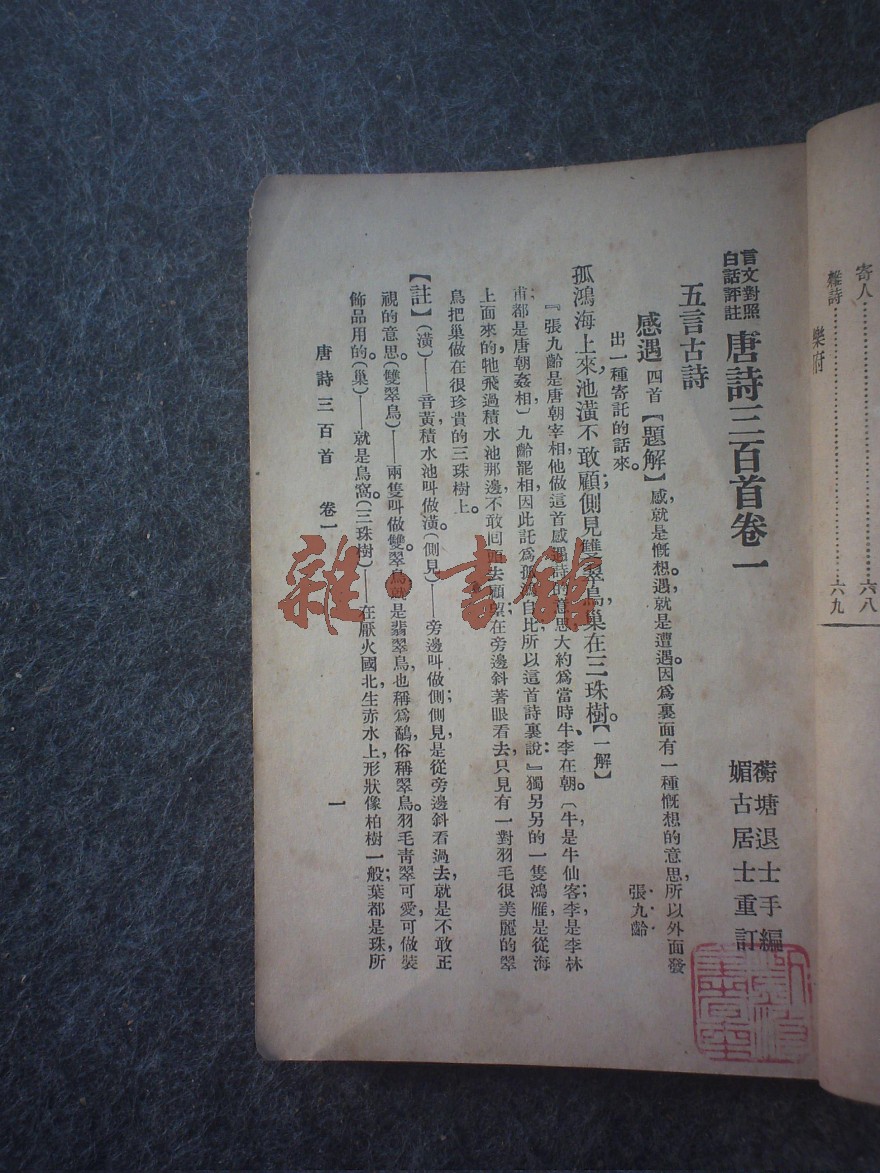 寄人……六八
雜詩……六九
樂府
言文對照
白話評註
唐詩三百首卷一
蘅塘退士手編
媚古居士重訂
五言古詩
感遇 四首【題解】感,就是慨想。遇,就是遭遇。因爲裏面有一種慨想的意思,所以外面發
出一種寄託的話來。
張九齡
孤鴻海上來,池潢不敢顧;側見雙翠鳥,巢在三珠樹。【一解】
『張九齡是唐朝宰相,他做這首感遇詩的意思,大約爲當時牛、李在朝。(牛是牛仙客;李是李林
甫;都是唐朝姦相)九齡罷相,因此託爲孤鴻自比;所以這首詩裏說:』獨另另的一隻鴻雁,是從海
上面來的,牠飛過積水池那邊,不敢囘頭去顧照;在旁邊斜著眼看去,只見有一對羽毛很美麗的翠
鳥,把巢做在很珍貴的三珠樹上。
【註】(潢)——音黃,積水池叫做潢。(側見)——旁邊叫做側;側見,是從旁邊斜看過去,就是不敢正
視的意思。(雙翠鳥)——兩隻叫做雙。翠鳥,就是翡翠鳥,也稱爲鷸,俗稱翠鳥。羽毛靑翠可愛,可做裝
飾品用的。(巢)——就是鳥窩。(三珠樹)——在厭火國北,生赤水上,形狀像柏樹一般;葉都是珠,所
唐詩三百首 卷一
一
雜·書館